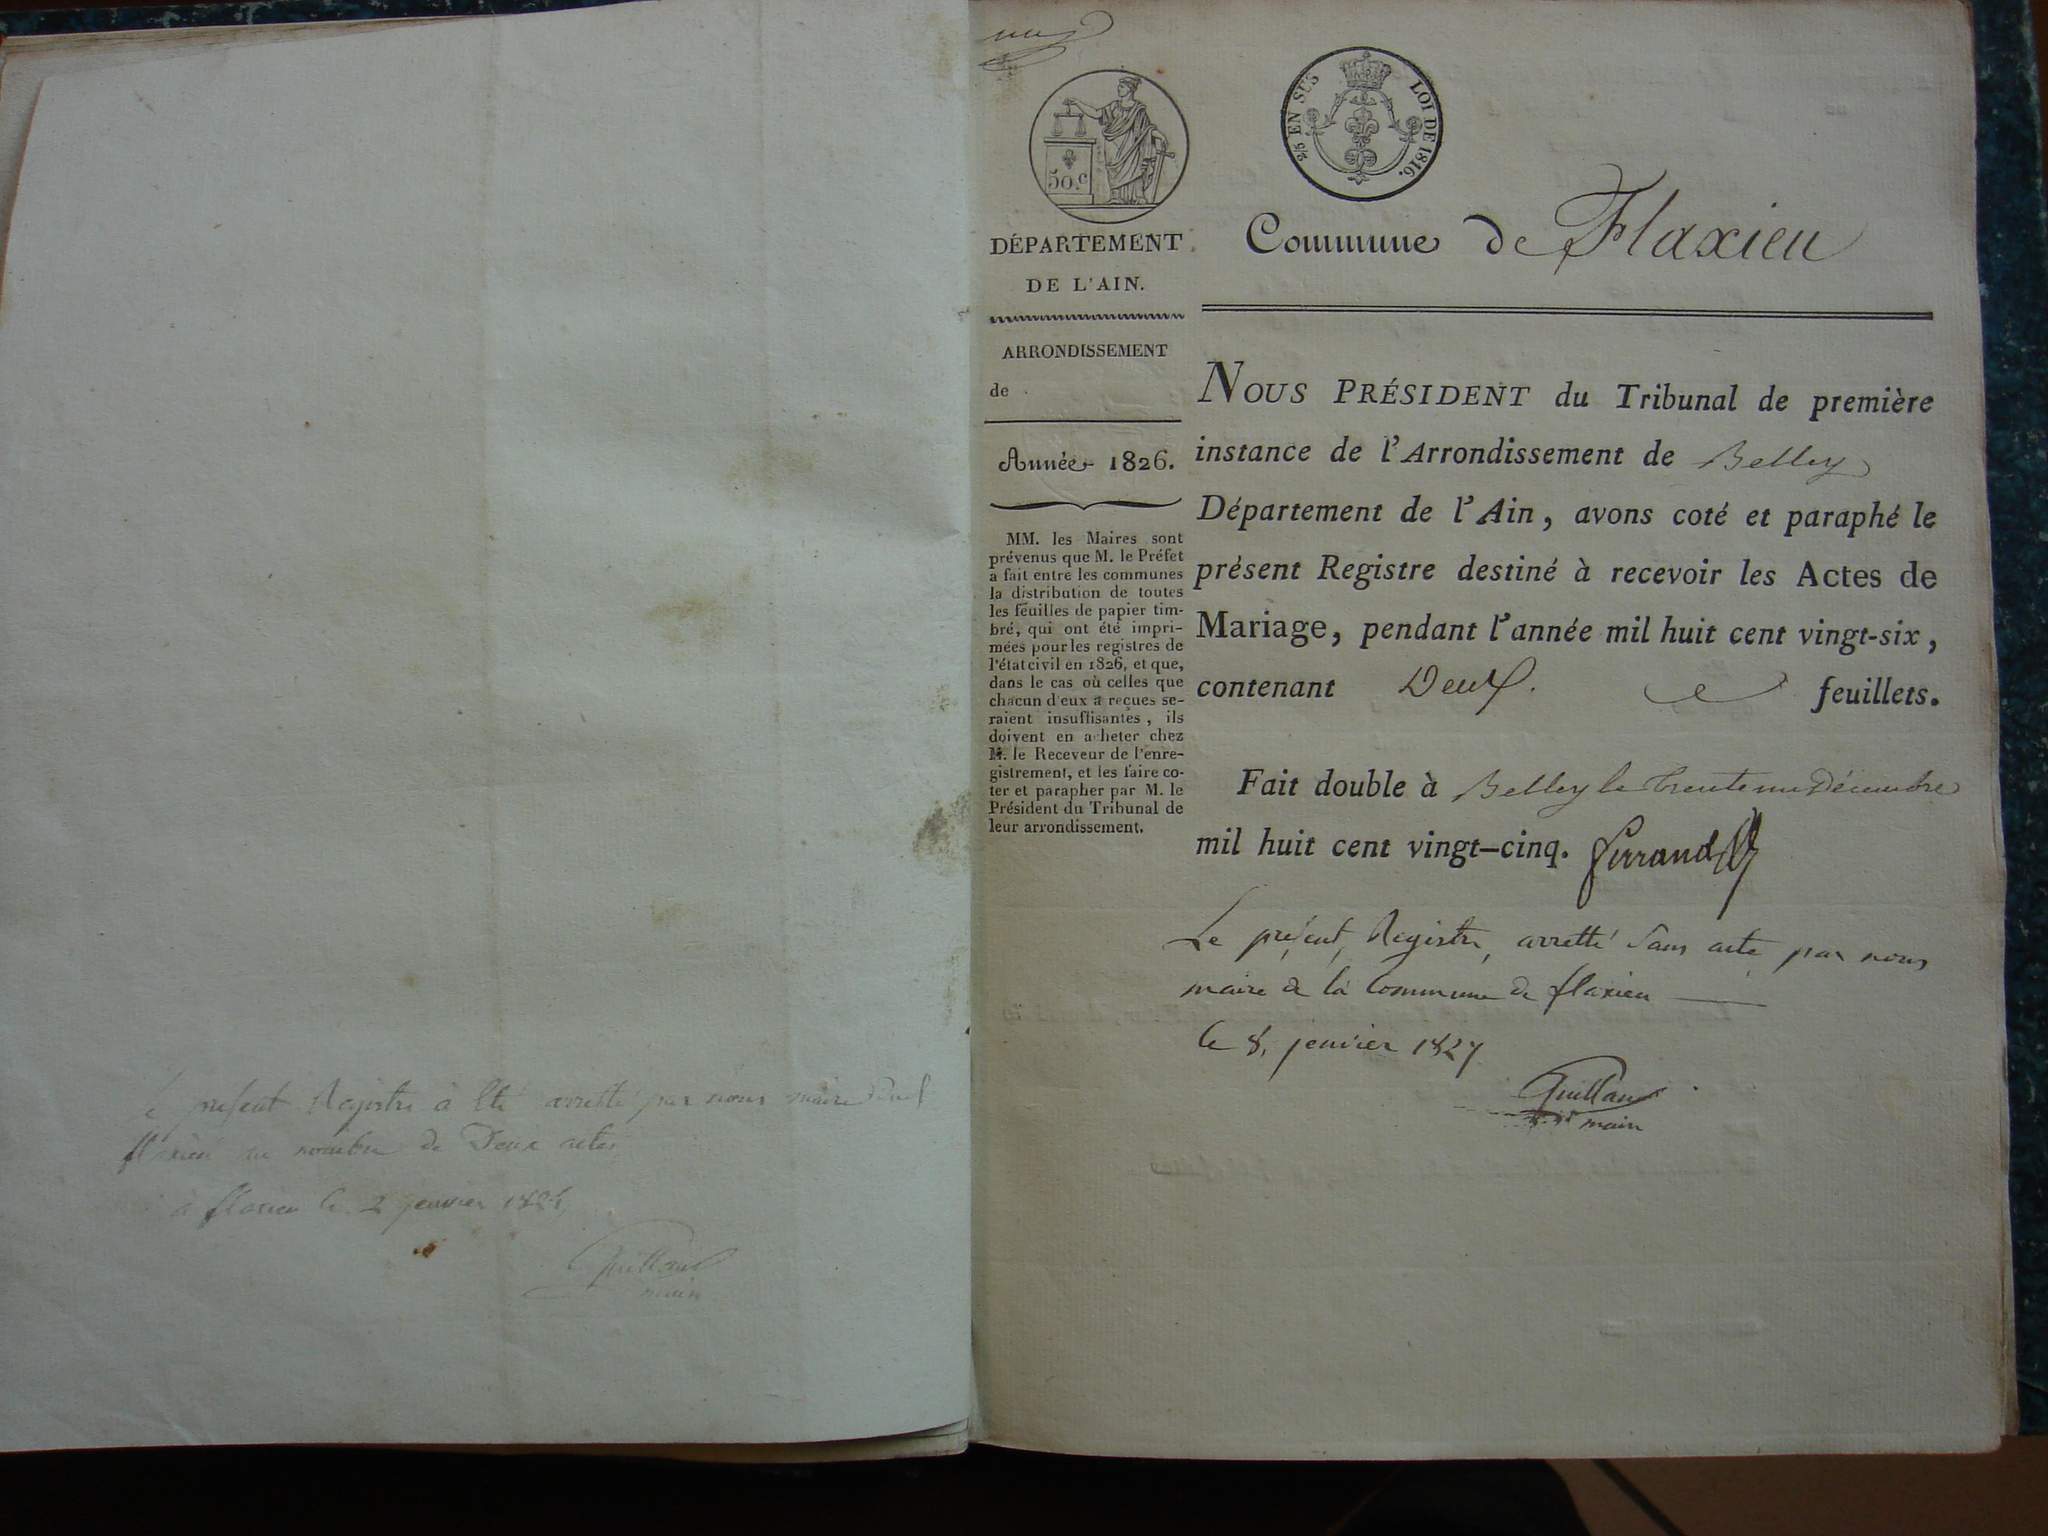 présent Registre à été arretté par nous maire
flaxieu au nombre de Deux actes
à flaxieu le 2 jenvier
Guilland
maire
50.c
2/5 EN SUS
LOI DE 1816.
DÉPARTEMENT
DE L'AIN.
ARRONDISSEMENT
de
Année 1826.
MM. les Maires sont
prévenus que M. le Préfet
a fait entre les communes
la distribution de toutes
les feuilles de papier tim-
bré, qui ont été impri-
mées pour les registres de
l'état civil en 1826, et que,
dans le cas où celles que
chacun d'eux a reçues se-
raient insuffisantes, ils
doivent en acheter chez
M. le Receveur de l'enre-
gistrement, et les faire co-
ter et parapher par M. le
Président du Tribunal de
leur arrondissement.
Commune de Flaxieu
NOUS PRÉSIDENT du Tribunal de première
instance de l'Arrondissement de Belley
Département de l'Ain, avons coté et paraphé le
présent Registre destiné à recevoir les Actes de
Mariage, pendant l'année mil huit cent vingt-six,
contenant Deux. feuillets.
Fait double à Belley le trente un Décembre
mil huit cent vingt-cinq. Ferrand
Le présent, Registre, arretté sans acte par nous
maire de la Commune de flaxieu
le 8, jenvier 1827
Guilland
maire